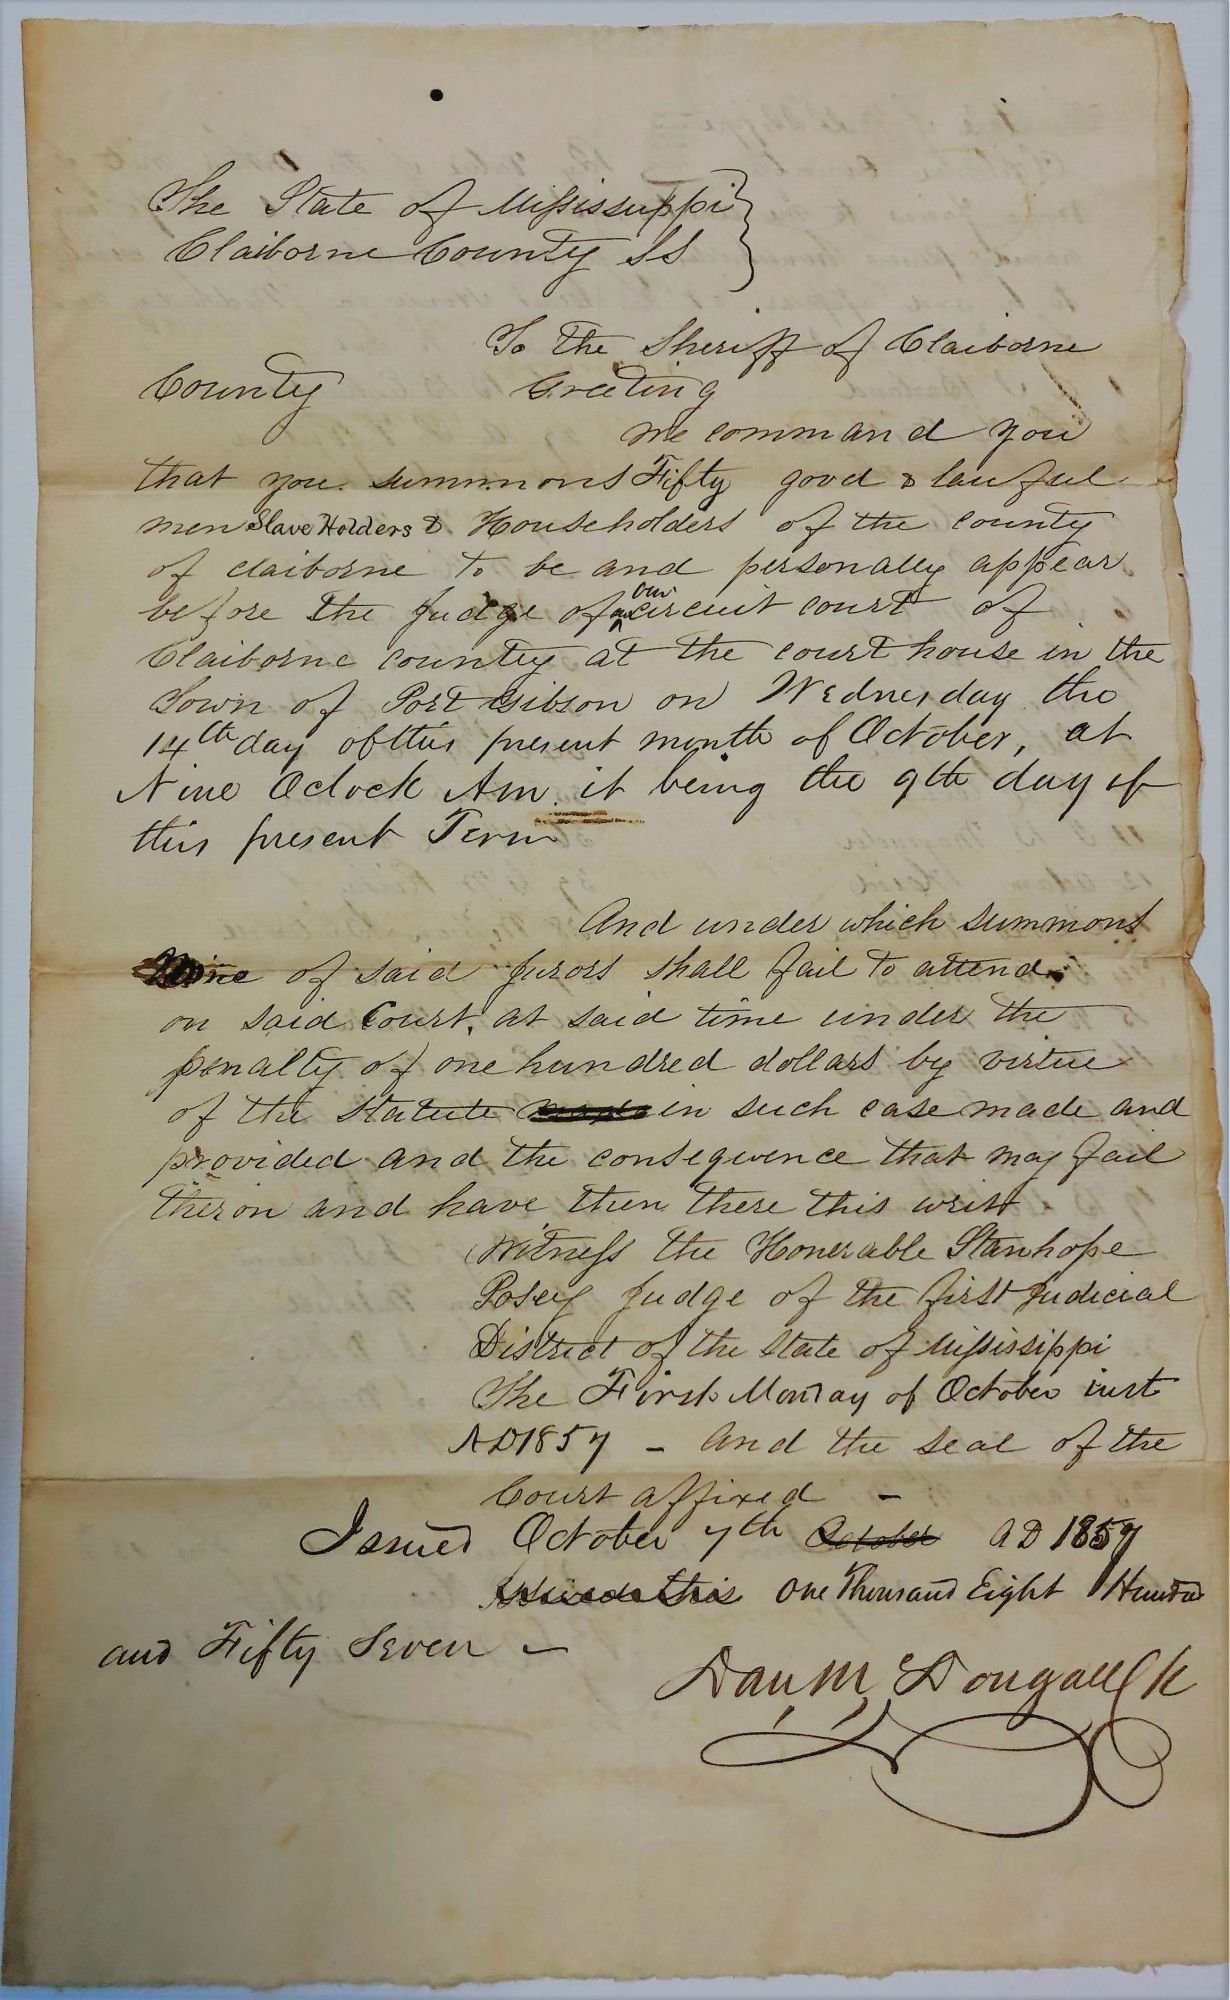 The State of Mississuppi
Claiborne County SS
To the Sheriff of Claiborne
County Greeting
We command you
that you summons Fifty good & lawful
men Slave Holders & Householders of the county
of claiborne to be and personally appear
before the Judge of our circuit court of
Claiborne county at the court house in the
Town of Port Gibson on Wednesday the
14th day of this present month of October, at
Nine Oclock Am. it being the 9th day of
this present Term
And under which summons
None of said Jurors shall fail to attend
on said Court, at said time under the
penalty of one hundred dollars by virtue
of the Statute in such case made and
provided and the consequence that may fail
theron and have then there this writ
Witness the Honerable Stanhope
Posey Judge of the first Judicial
District of the State of Mississippi
The First Monday of October inst
AD 1857 - and the seal of the
Court affixed -
Issued October 7th October AD 1857
this one Thousand Eight Hundred
and Fifty Seven -
Dan McDougall Clk